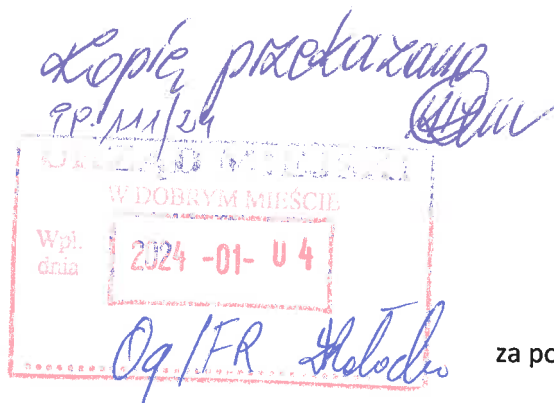 Kopię przekazano
9P.111/24
URZĄD MIEJSKI
W DOBRYM MIEŚCIE
Wpł.
dnia
2024 -01- 04
Og/FR
za po